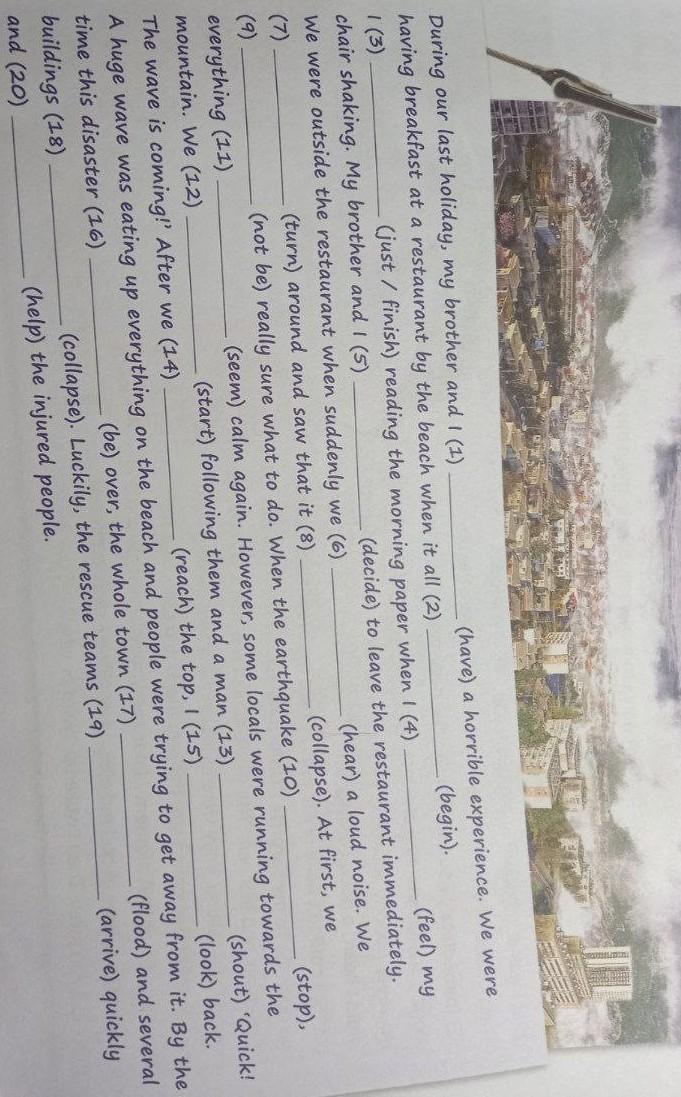 During our last holiday, my brother and I (1) __________ (have) a horrible experience. We were
having breakfast at a restaurant by the beach when it all (2) __________ (begin).
I (3) __________ (just / finish) reading the morning paper when I (4) __________ (feel) my
chair shaking. My brother and I (5) __________ (decide) to leave the restaurant immediately.
We were outside the restaurant when suddenly we (6) __________ (hear) a loud noise. We
(7) __________ (turn) around and saw that it (8) __________ (collapse). At first, we
(9) __________ (not be) really sure what to do. When the earthquake (10) __________ (stop),
everything (11) __________ (seem) calm again. However, some locals were running towards the
mountain. We (12) __________ (start) following them and a man (13) __________ (shout) 'Quick!
The wave is coming!' After we (14) __________ (reach) the top, I (15) __________ (look) back.
A huge wave was eating up everything on the beach and people were trying to get away from it. By the
time this disaster (16) __________ (be) over, the whole town (17) __________ (flood) and several
buildings (18) __________ (collapse). Luckily, the rescue teams (19) __________ (arrive) quickly
and (20) __________ (help) the injured people.